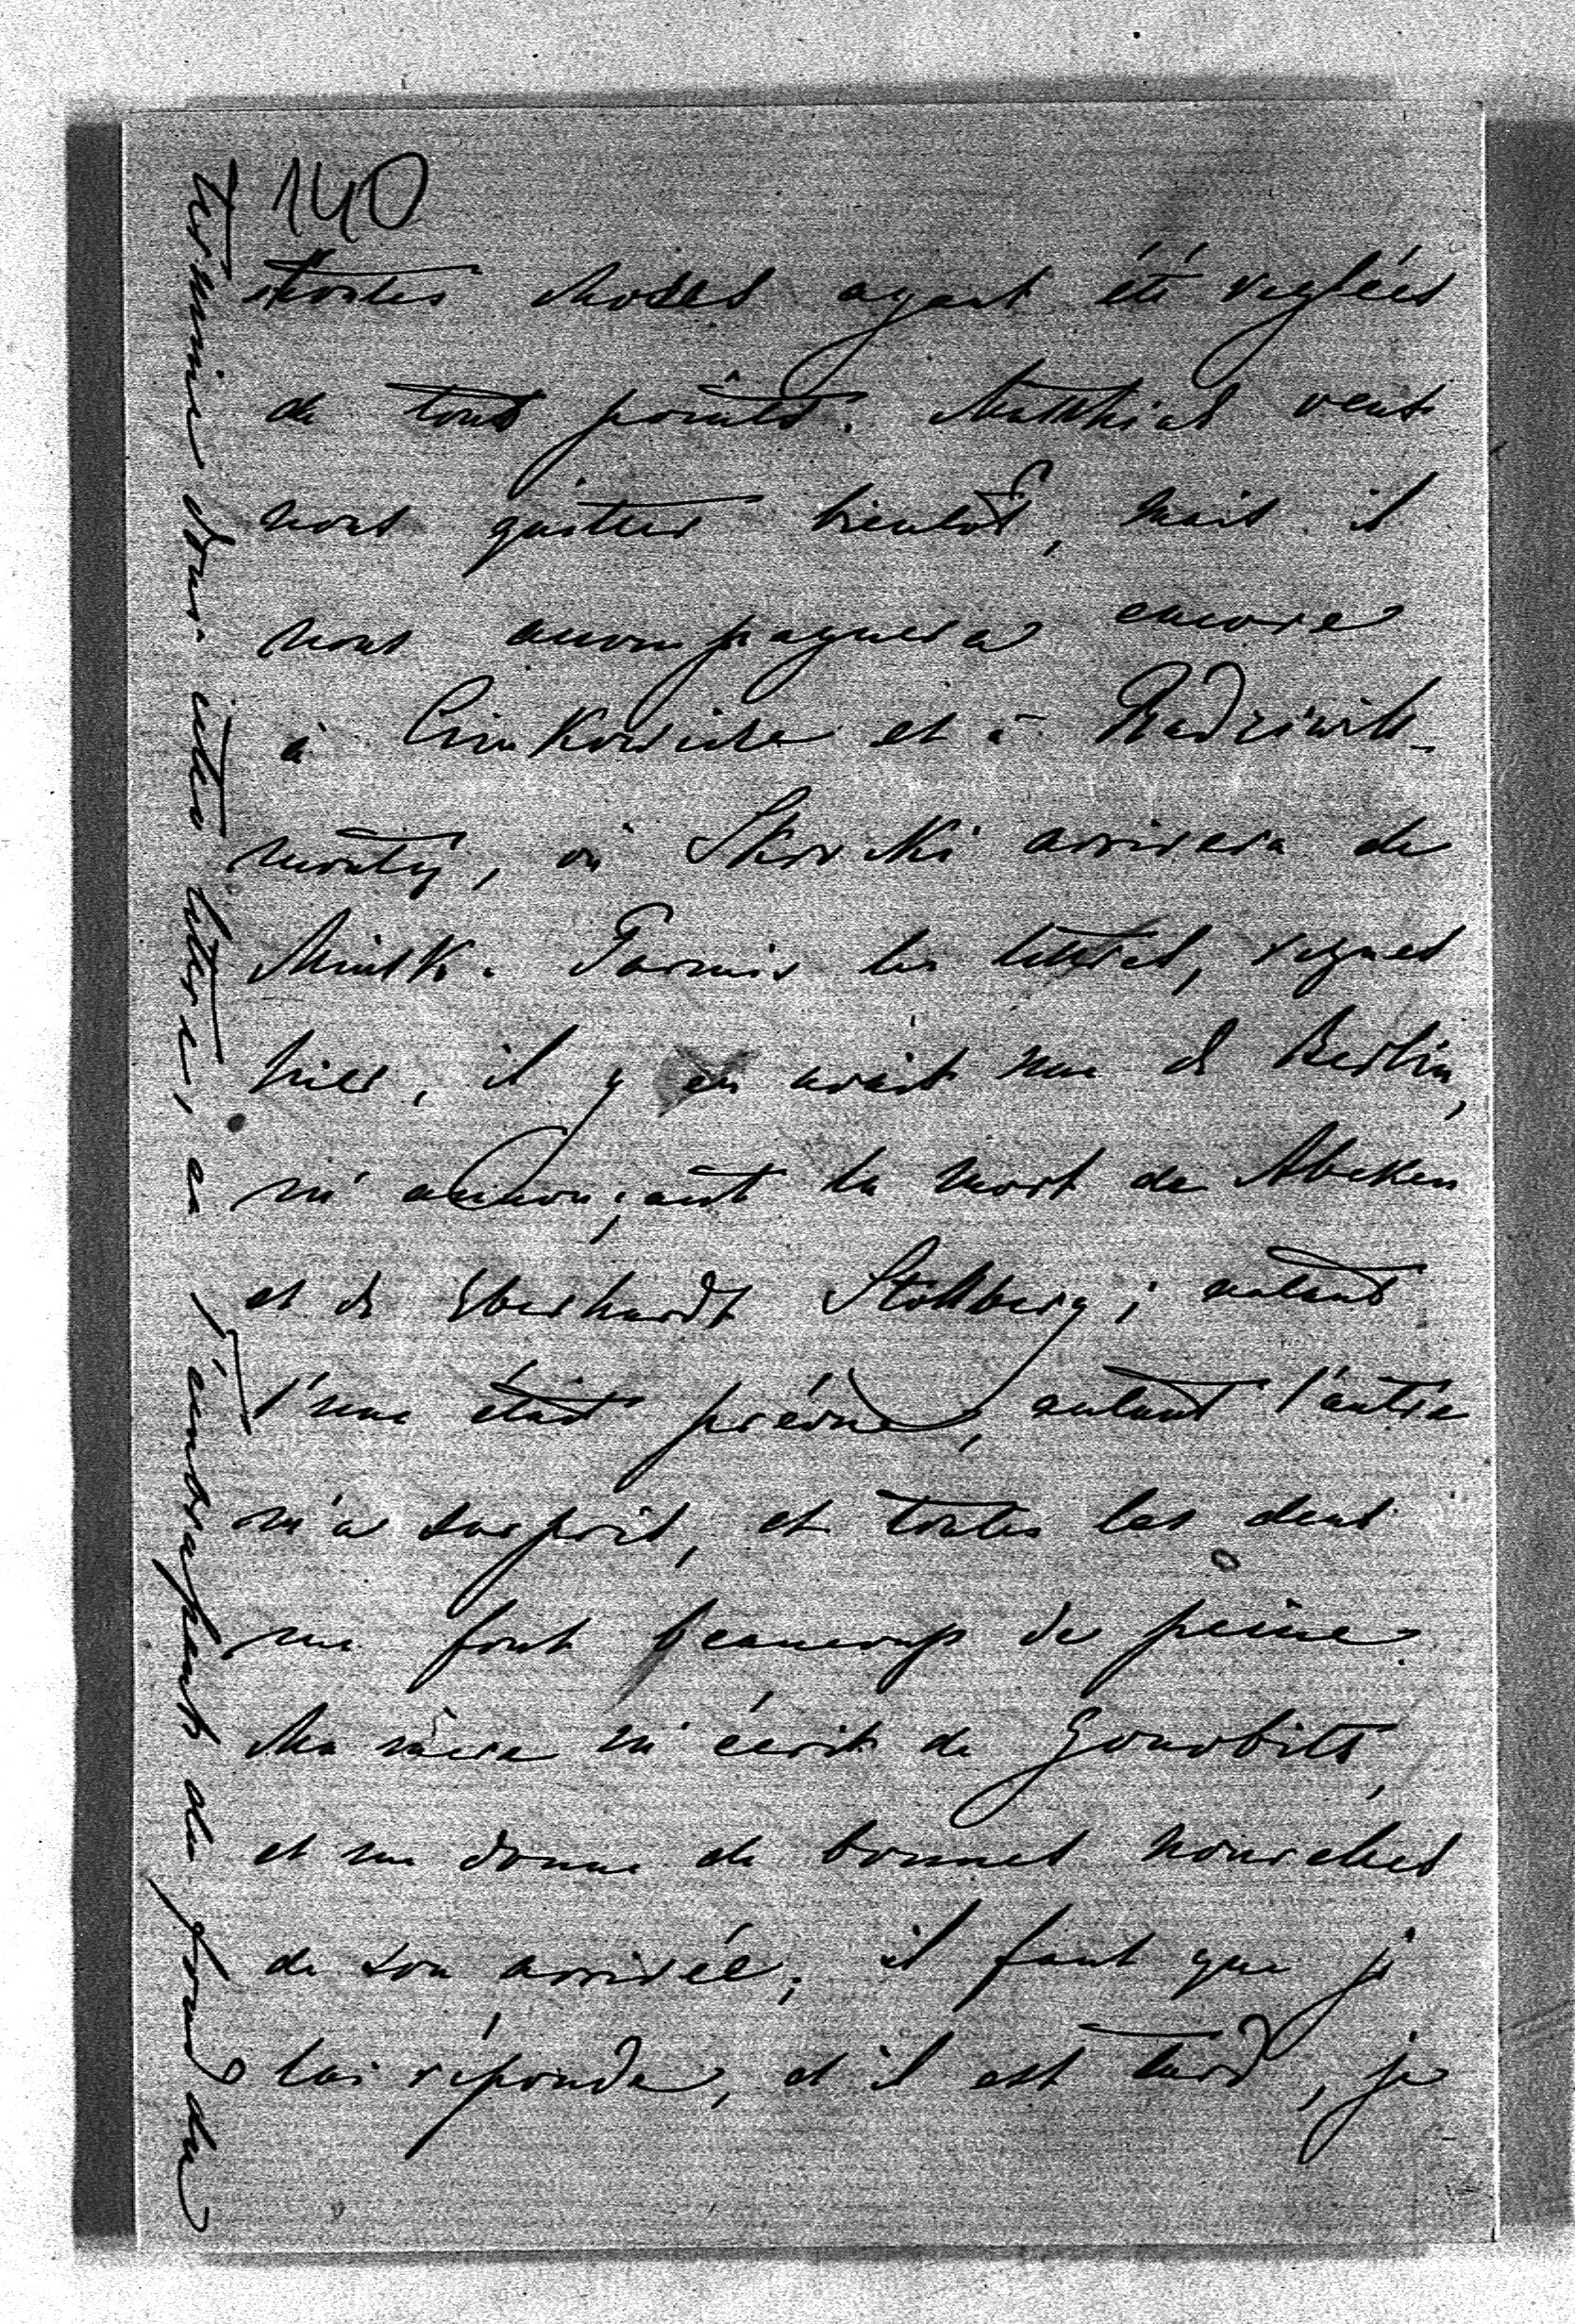 140
toutes choses ayant été reglées
de tous points. Matthias veut
nous quitter bientôt, mais il
nous accompagnera encore
à Cimkowicze et à Radziwill-
monty, où Skirski arrivera de
Minsk. Parmis les lettres, reçues
hier, il y en avait une de Berlin,
m'annonçant la mort de Abeken
et de Eberhardt Stollberg; autant
l'une était prévue, autant l'autre
m'a surpris, et toutes les deux
me font beaucoup de peine.
Ma mère m'écrit de
et me donne de bonnes nouvelles
de son arrivée; il faut que je
lui réponde, et il est tard, je
termine donc cette lettre, en t'embrassant du fond du